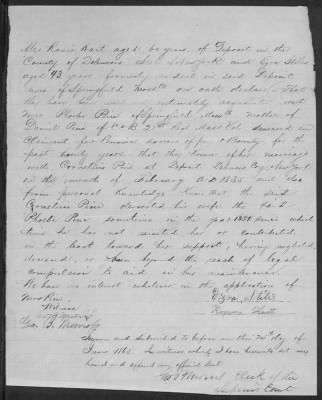 Mrs Roxie Hart aged 60 years, of Deposit in the
County of Delaware State of New York and Ezra Stiles
aged 73 years formerly resident in said Deposit
now of Springfield Mass on oath declare that
they have been intimately acquainted with
Mrs Phebe Pine of Springfield Mass mother of
Daniel Pine of Co B 2nd Mass Vols deceased and
Claimant for Pension & Bounty for the
past twenty years that they know of her marriage
with Cornelius Pine at Deposit Delaware Co, New York
in the month of February A.D. and also
from personal knowledge know that the said
Cornelius Pine deserted his wife the said
Phebe Pine sometime in the year 1854 since which
time he has not assisted her or contributed
in the least toward her support, having neglected,
deserted, or been beyond the reach of legal
compulsion to aid in her maintenance.
We have no interest whatever in the application of
Mrs Pine.
Witness
Ezra Stiles
Geo. B. Morris
Sworn and subscribed to before me this day of
June 1865. In witness which I have hereunto set my
hand and affixed my official seal.
Clerk of the
Superior Court